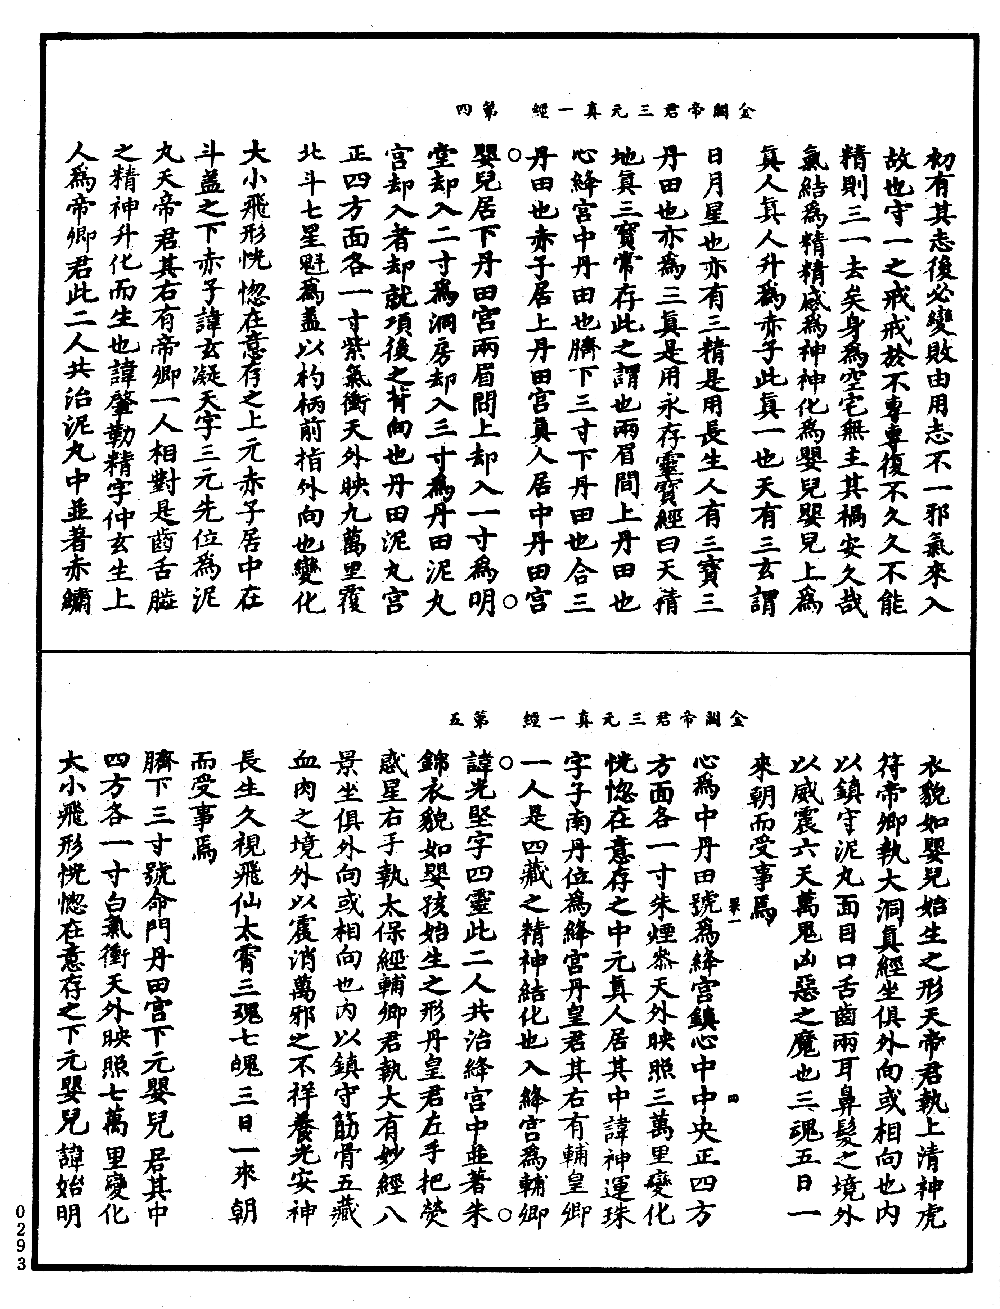 金闕帝君三元真一經　第四
初有其志後必變敗由用志不一邪氣來入
故也守一之戒戒於不專專復不久久不能
精則三一去矣身為空宅無主其禍安久哉
氣結為精精感為神神化為嬰兒嬰兒上為
真人真人升為赤子此真一也天有三玄謂
日月星也亦有三精是用長生人有三寶三
丹田也亦為三真是用永存靈寶經曰天精
地真三寶常存此之謂也兩眉間上丹田也
心絳宮中丹田也臍下三寸下丹田也合三
丹田也赤子居上丹田宮真人居中丹田宮
嬰兒居下丹田宮兩眉間上却入一寸為明
堂却入二寸為洞房却入三寸為丹田泥丸
宮却入者却就項後之背向也丹田泥丸宮
正四方面各一寸紫氣衝天外映九萬里覆
北斗七星魁為蓋以杓柄前指外向也變化
大小飛形恍惚在意存之上元赤子居中在
斗蓋之下赤子諱玄凝天字三元先位為泥
丸天帝君其右有帝卿一人相對是齒舌腦
之精神升化而生也諱肇勒精字仲玄生上
人為帝卿君此二人共治泥丸中並著赤繡
金闕帝君三元真一經　第五
衣貌如嬰兒始生之形天帝君執上清神虎
符帝卿執大洞真經坐俱外向或相向也內
以鎮守泥丸面目口舌齒兩耳鼻髮之境外
以威震六天萬鬼凶惡之魔也三魂五日一
來朝而受事焉
心為中丹田號為絳宮鎮心中中央正四方
方面各一寸朱煙參天外映照三萬里變化
恍惚在意存之中元真人居其中諱神運珠
字子南丹位為絳宮丹皇君其右有輔皇卿
一人是四藏之精神結化也入絳宮為輔卿
諱光堅字四靈此二人共治絳宮中並著朱
錦衣貌如嬰孩始生之形丹皇君左手把熒
惑星右手執太保經輔卿君執大有妙經八
景坐俱外向或相向也內以鎮守筋骨五藏
血肉之境外以震消萬邪之不祥養光安神
長生久視飛仙太霄三魂七魄三日一來朝
而受事焉
臍下三寸號命門丹田宮下元嬰兒居其中
四方各一寸白氣衝天外映照七萬里變化
大小飛形恍惚在意存之下元嬰兒諱始明
0293